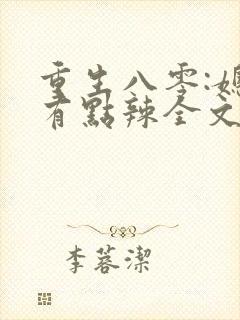 重生八零:媳
有點辣全文
李蓉潔